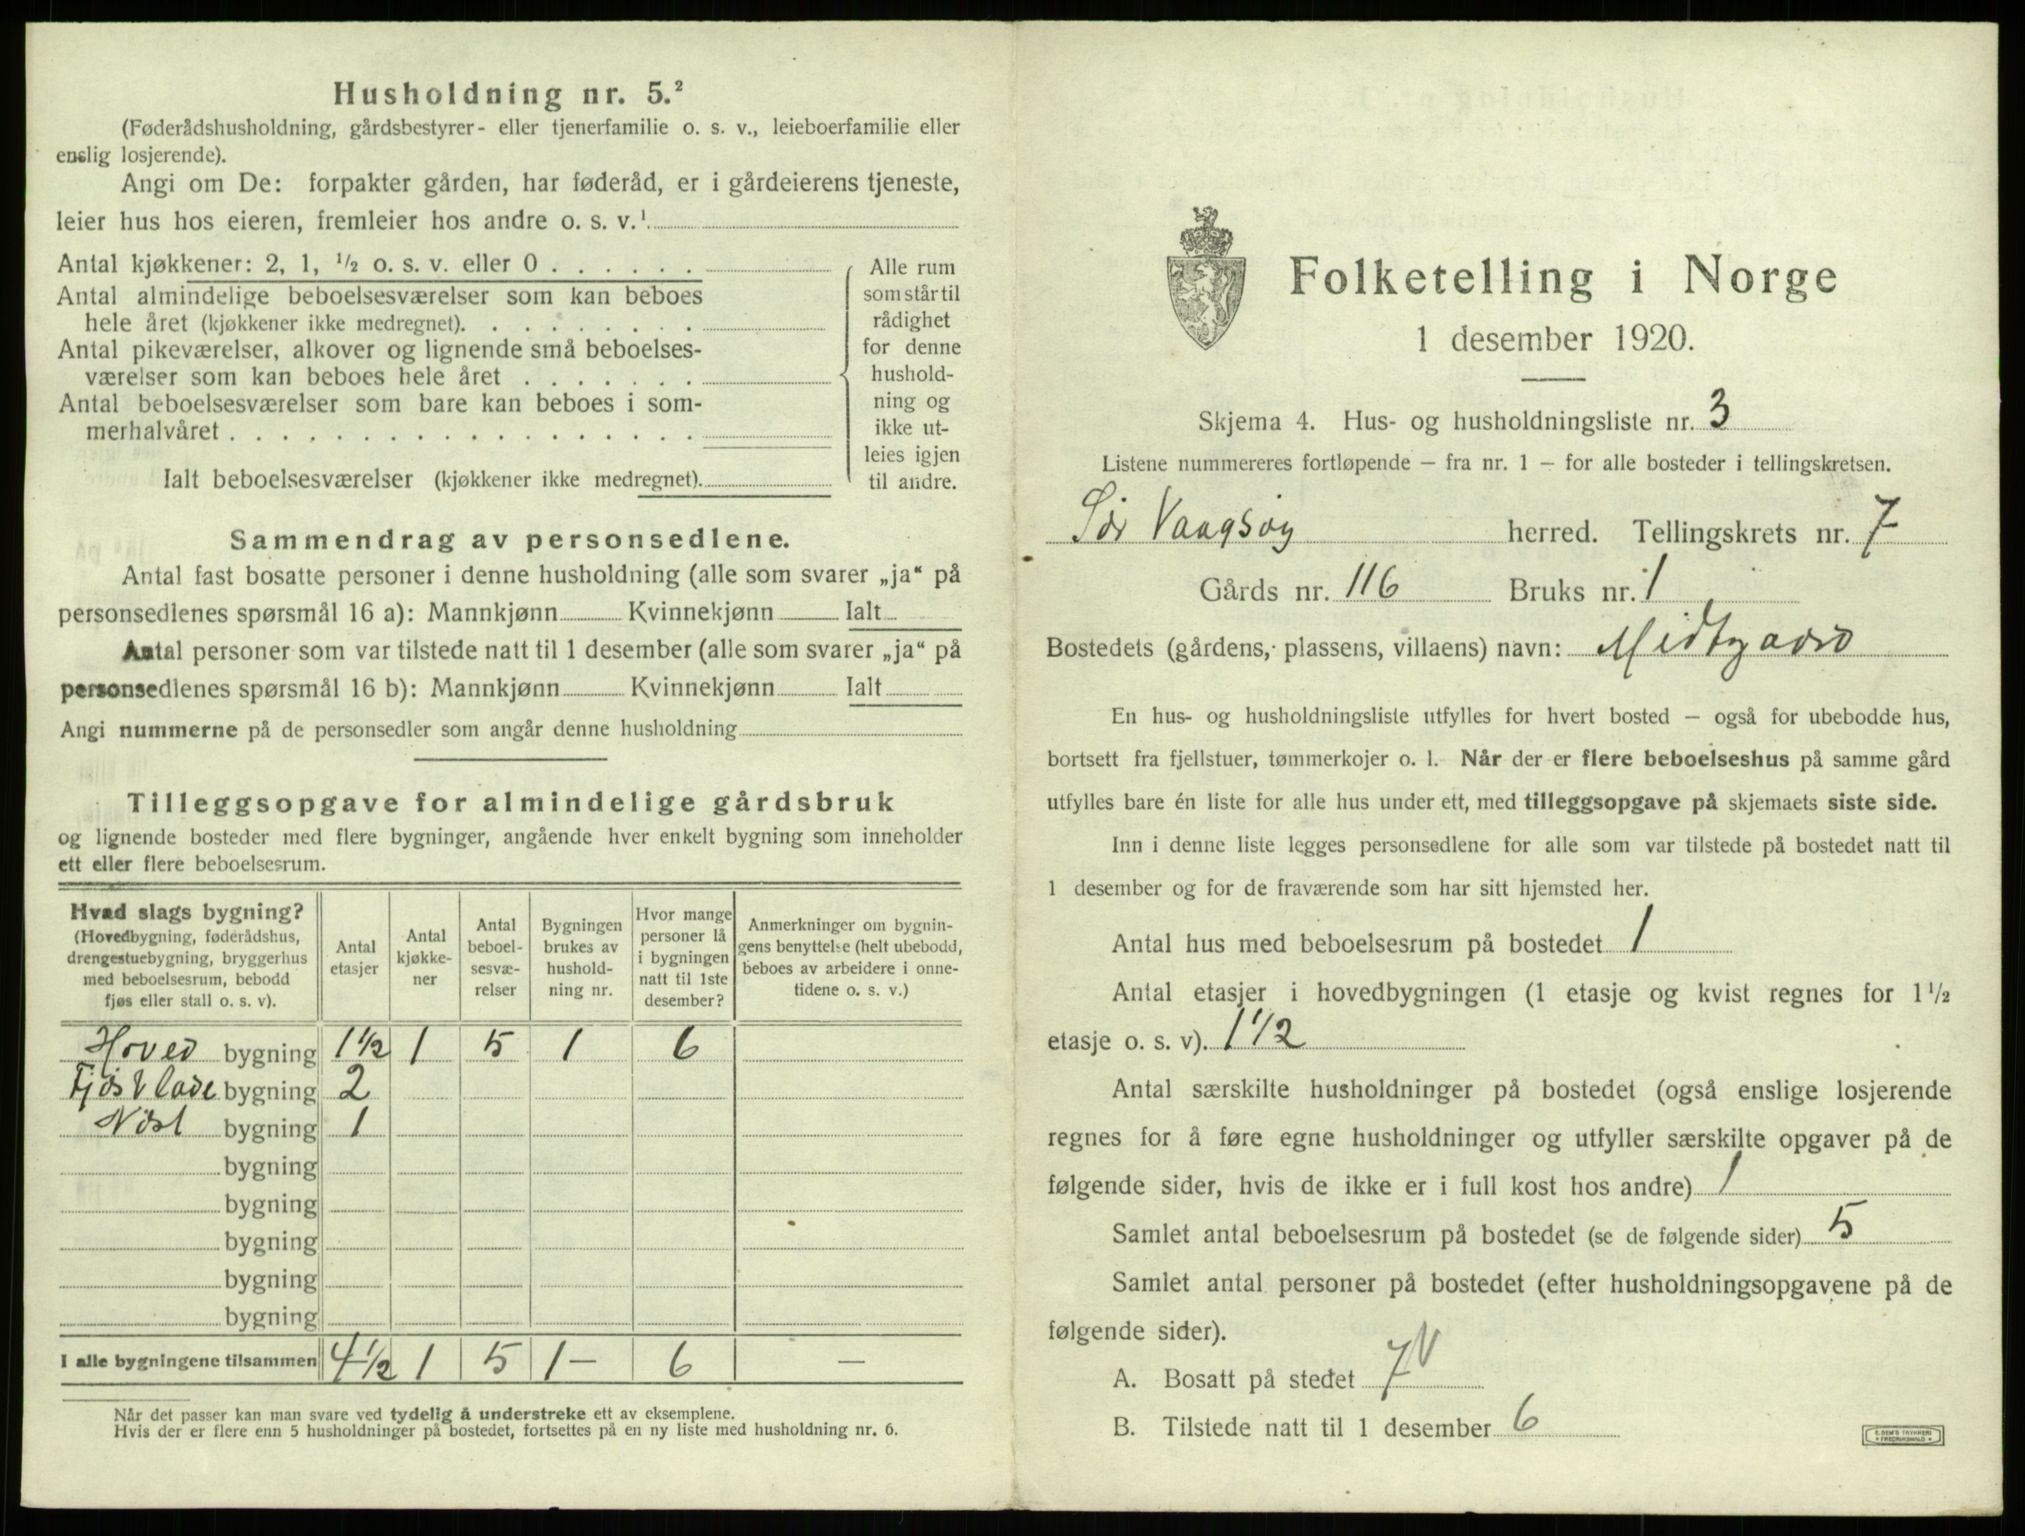 Husholdning nr. 5.²
(Føderådshusholdning, gårdsbestyrer- eller tjenerfamilie o. s. v., leieboerfamilie eller
enslig losjerende).
Angi om De: forpakter gården, har føderåd, er i gårdeierens tjeneste,
leier hus hos eieren, fremleier hos andre o. s. v.¹
Antal kjøkkener: 2, 1, ½ o. s. v. eller 0 . . . . . .
Antal almindelige beboelsesværelser som kan beboes
hele året (kjøkkener ikke medregnet). . . . . . . . .
Antal pikeværelser, alkover og lignende små beboelses-
værelser som kan beboes hele året . . . . . . .
Antal beboelsesværelser som bare kan beboes i som-
merhalvåret . . . . . . . . . . . . . . . . . .
Ialt beboelsesværelser (kjøkkener ikke medregnet).
Alle rum
som står til
rådighet
for denne
hushold-
ning og
ikke ut-
leies igjen
til andre.
Sammendrag av personsedlene.
Antal fast bosatte personer i denne husholdning (alle som svarer „ja“ på
personsedlenes spørsmål 16 a): Mannkjønn Kvinnekjønn Ialt
Antal personer som var tilstede natt til 1 desember (alle som svarer „ja“ på
personsedlenes spørsmål 16 b): Mannkjønn Kvinnekjønn Ialt
Angi nummerne på de personsedler som angår denne husholdning
Tilleggsopgave for almindelige gårdsbruk
og lignende bosteder med flere bygninger, angående hver enkelt bygning som inneholder
ett eller flere beboelsesrum.
Hvad slags bygning?
(Hovedbygning, føderådshus,
drengestuebygning, bryggerhus
med beboelsesrum, bebodd
fjøs eller stall o. s. v).
Antal
etasjer
Antal
kjøkke-
ner
Antal
beboel-
sesvæ-
relser
Bygningen
brukes av
hushold-
ning nr.
Hvor mange
personer lå
i bygningen
natt til 1ste
desember?
Anmerkninger om bygnin-
gens benyttelse (helt ubebodd,
beboes av arbeidere i onne-
tidene o. s. v.)
Hoved bygning 1½ 1 5 1 6
Fjøs & lade bygning 2
Nöst bygning 1
bygning
bygning
bygning
bygning
bygning
I alle bygningene tilsammen 4½ 1 5 1 – 6 –
Når det passer kan man svare ved tydelig å understreke ett av eksemplene.
Hvis der er flere enn 5 husholdninger på bostedet, fortsettes på en ny liste med husholdning nr. 6.
Folketelling i Norge
1 desember 1920.
Skjema 4. Hus- og husholdningsliste nr. 3
Listene nummereres fortløpende – fra nr. 1 – for alle bosteder i tellingskretsen.
Sör Vaagsöy herred. Tellingskrets nr. 7
Gårds nr. 116 Bruks nr. 1
Bostedets (gårdens, plassens, villaens) navn: Midtgaard
En hus- og husholdningsliste utfylles for hvert bosted – også for ubebodde hus,
bortsett fra fjellstuer, tømmerkojer o. l. Når der er flere beboelseshus på samme gård
utfylles bare én liste for alle hus under ett, med tilleggsopgave på skjemaets siste side.
Inn i denne liste legges personsedlene for alle som var tilstede på bostedet natt til
1 desember og for de fraværende som har sitt hjemsted her.
Antal hus med beboelsesrum på bostedet 1
Antal etasjer i hovedbygningen (1 etasje og kvist regnes for 1½
etasje o. s. v). 1½
Antal særskilte husholdninger på bostedet (også enslige losjerende
regnes for å føre egne husholdninger og utfyller særskilte opgaver på de
følgende sider, hvis de ikke er i full kost hos andre) 1
Samlet antal beboelsesrum på bostedet (se de følgende sider) 5
Samlet antal personer på bostedet (efter husholdningsopgavene på de
følgende sider).
A. Bosatt på stedet 7 V
B. Tilstede natt til 1 desember 6
E. SEM'S TRYKKERI
FREDRIKSHALD